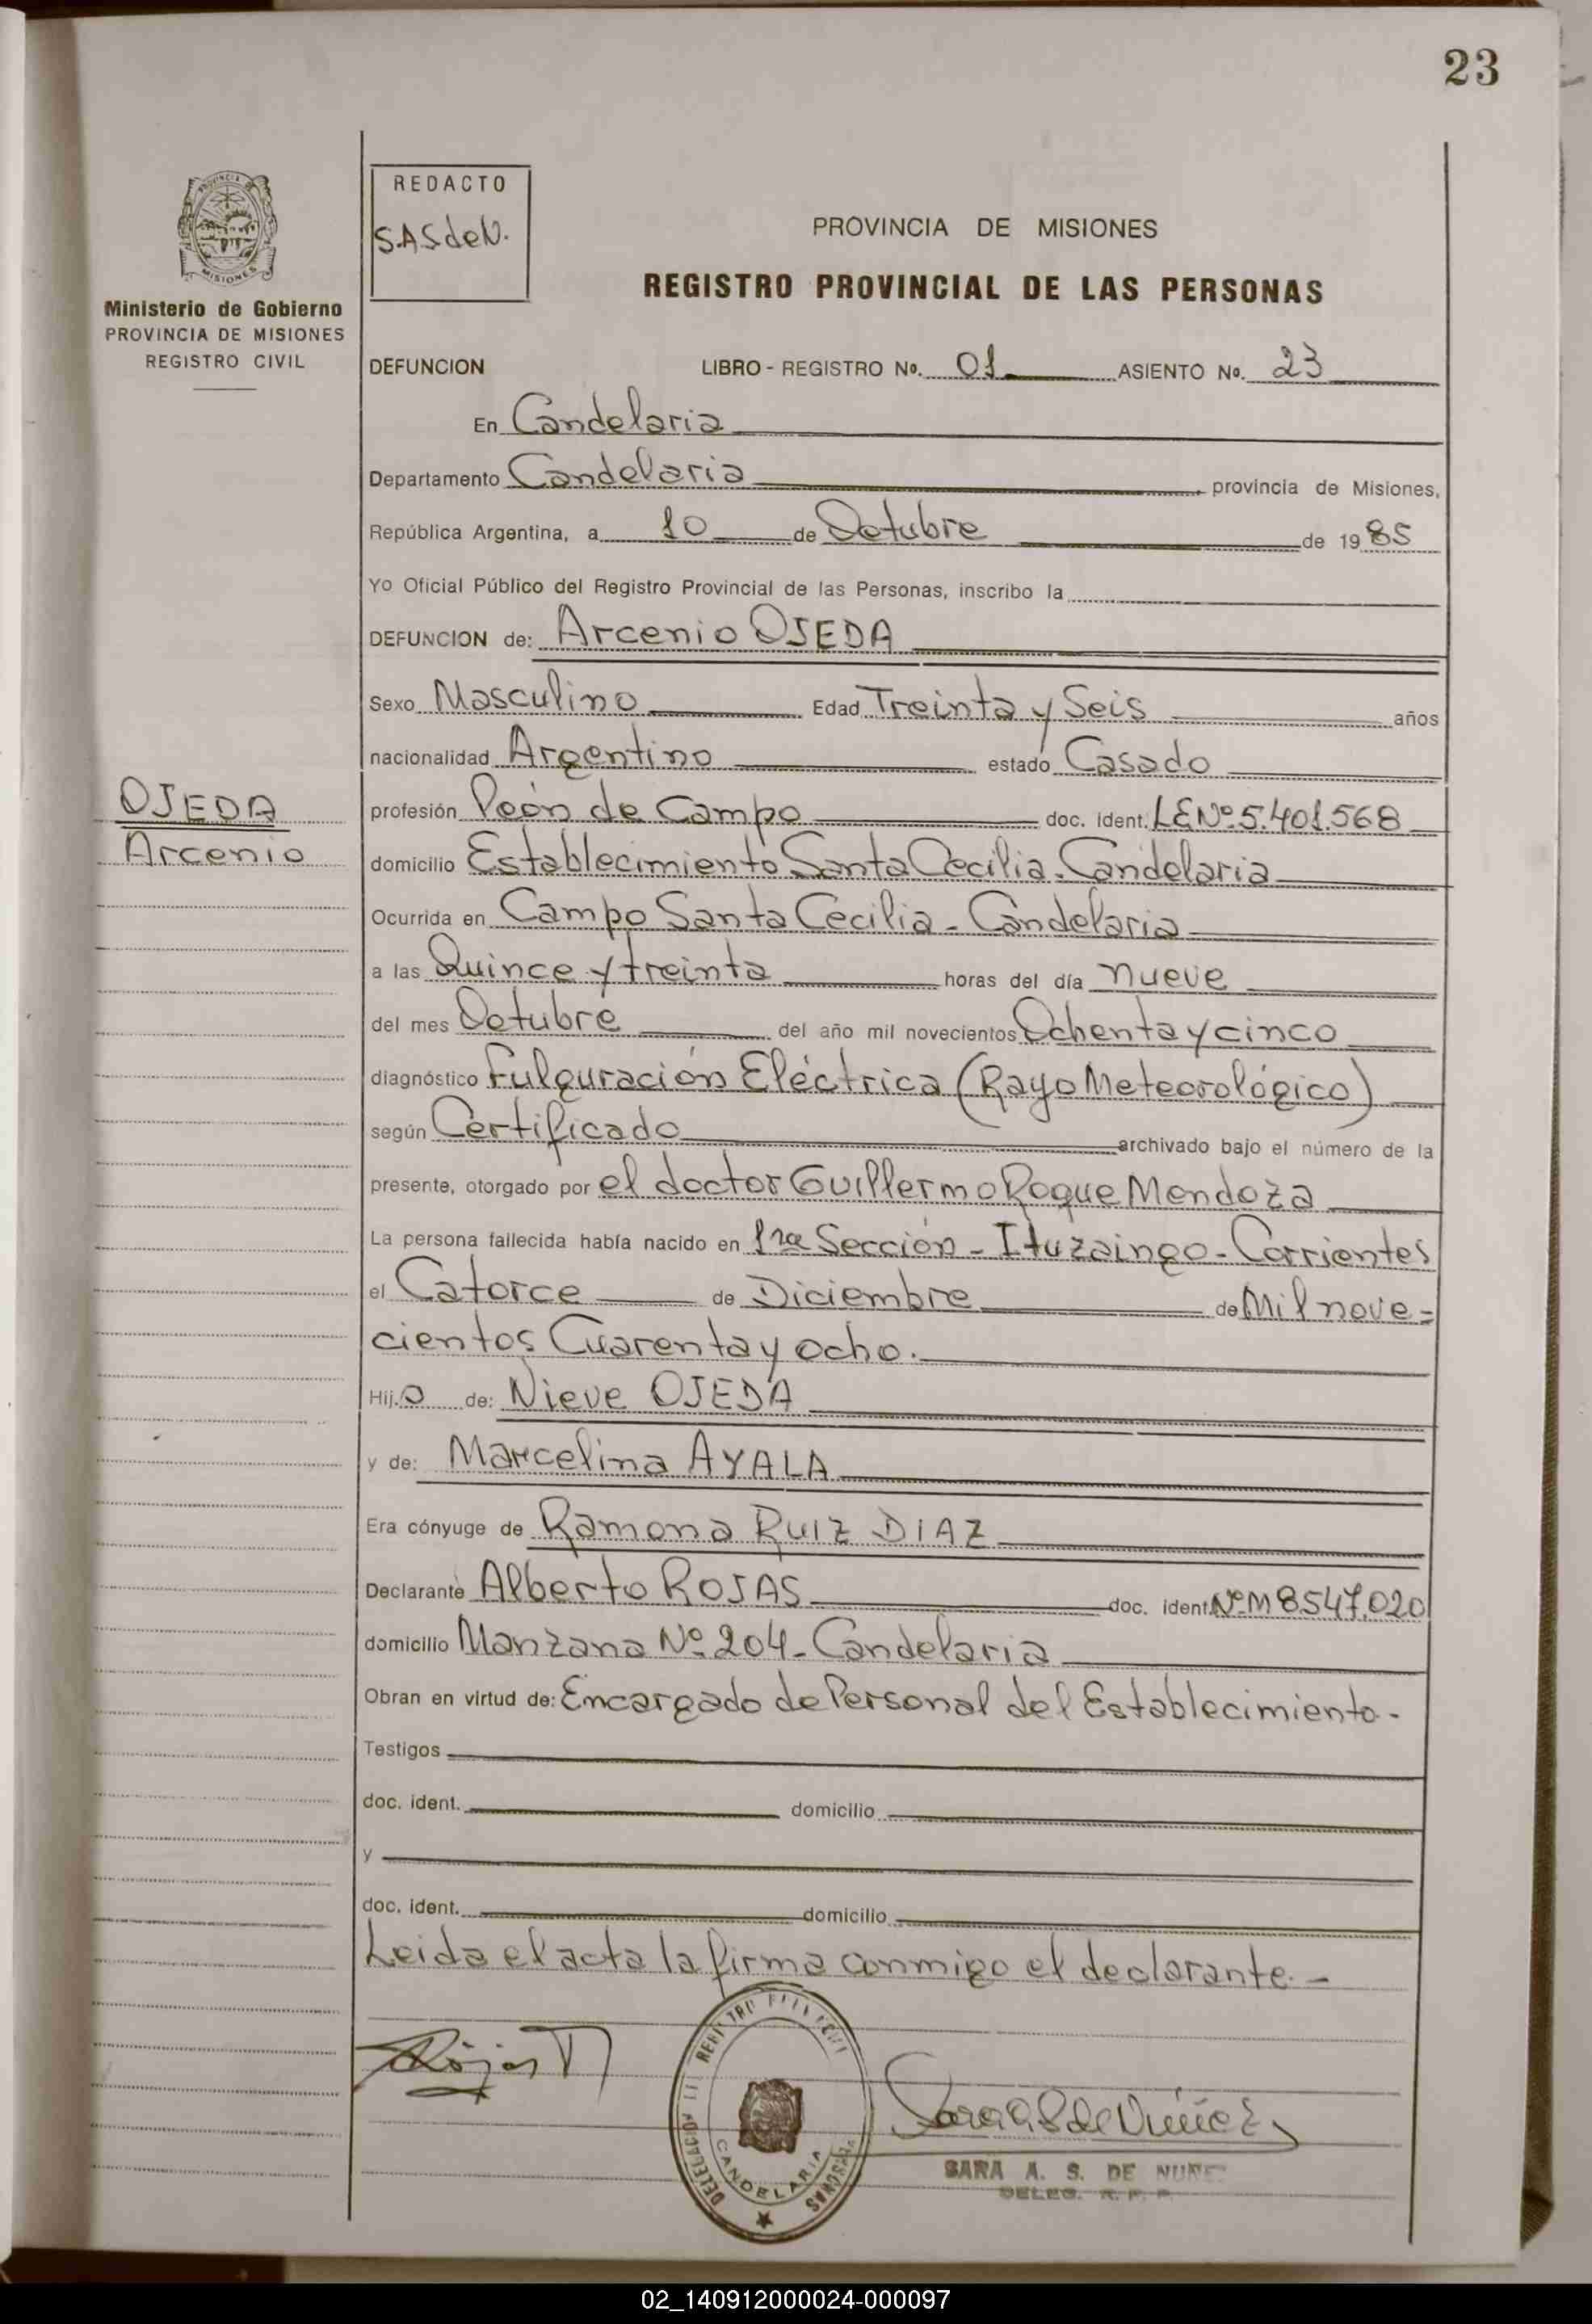 23
REDACTO
S.A.S de N.
PROVINCIA DE MISIONES
REGISTRO PROVINCIAL DE LAS PERSONAS
MISIONES
Ministerio de Gobierno
PROVINCIA DE MISIONES
REGISTRO CIVIL
DEFUNCION LIBRO - REGISTRO Nº. 01 ASIENTO Nº. 23
En Candelaria
Departamento Candelaria provincia de Misiones,
República Argentina, a 10 de Octubre de 1985
Yo Oficial Público del Registro Provincial de las Personas, inscribo la
DEFUNCION de: Arcenio OJEDA
Sexo Masculino Edad Treinta y Seis años
nacionalidad Argentino estado Casado
OJEDA
Arcenio
profesión Peón de Campo doc. ident. L.E.Nº 5.401.568
domicilio Establecimiento Santa Cecilia. Candelaria
Ocurrida en Campo Santa Cecilia - Candelaria
a las Quince y treinta horas del día nueve
del mes Octubre del año mil novecientos Ochenta y cinco
diagnóstico Fulguración Eléctrica (Rayo Meteorológico)
según Certificado archivado bajo el número de la
presente, otorgado por el doctor Guillermo Roque Mendoza
La persona fallecida había nacido en 1ra Sección - Ituzaingo - Corrientes
el Catorce de Diciembre de Mil nove=
cientos Cuarenta y ocho.
Hijo de: Nieve OJEDA
y de: Marcelina AYALA
Era cónyuge de Ramona RUIZ DIAZ
Declarante Alberto ROJAS doc. ident. Nº M 8547.020
domicilio Manzana Nº 204 - Candelaria
Obran en virtud de: Encargado de Personal del Establecimiento.-
Testigos
doc. ident. domicilio
y
doc. ident. domicilio
Leida el acta la firma conmigo el declarante.-
Rojas
DELEGACION REGISTRO PERSONAS
CANDELARIA
Sara A. S de Núñez
SARA A. S. DE NUÑEZ
DELEG. R. P. P.
02_140912000024-000097